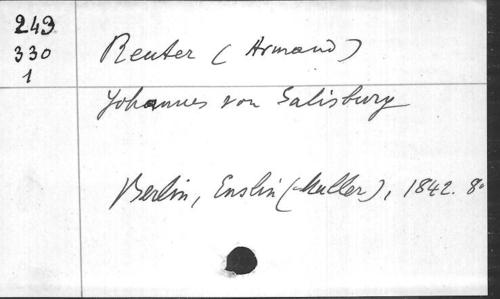 243
330
1
Reuter (Armand)
Johannes von Salisbury
Berlin, Enslin (Muller), 1842. 8°